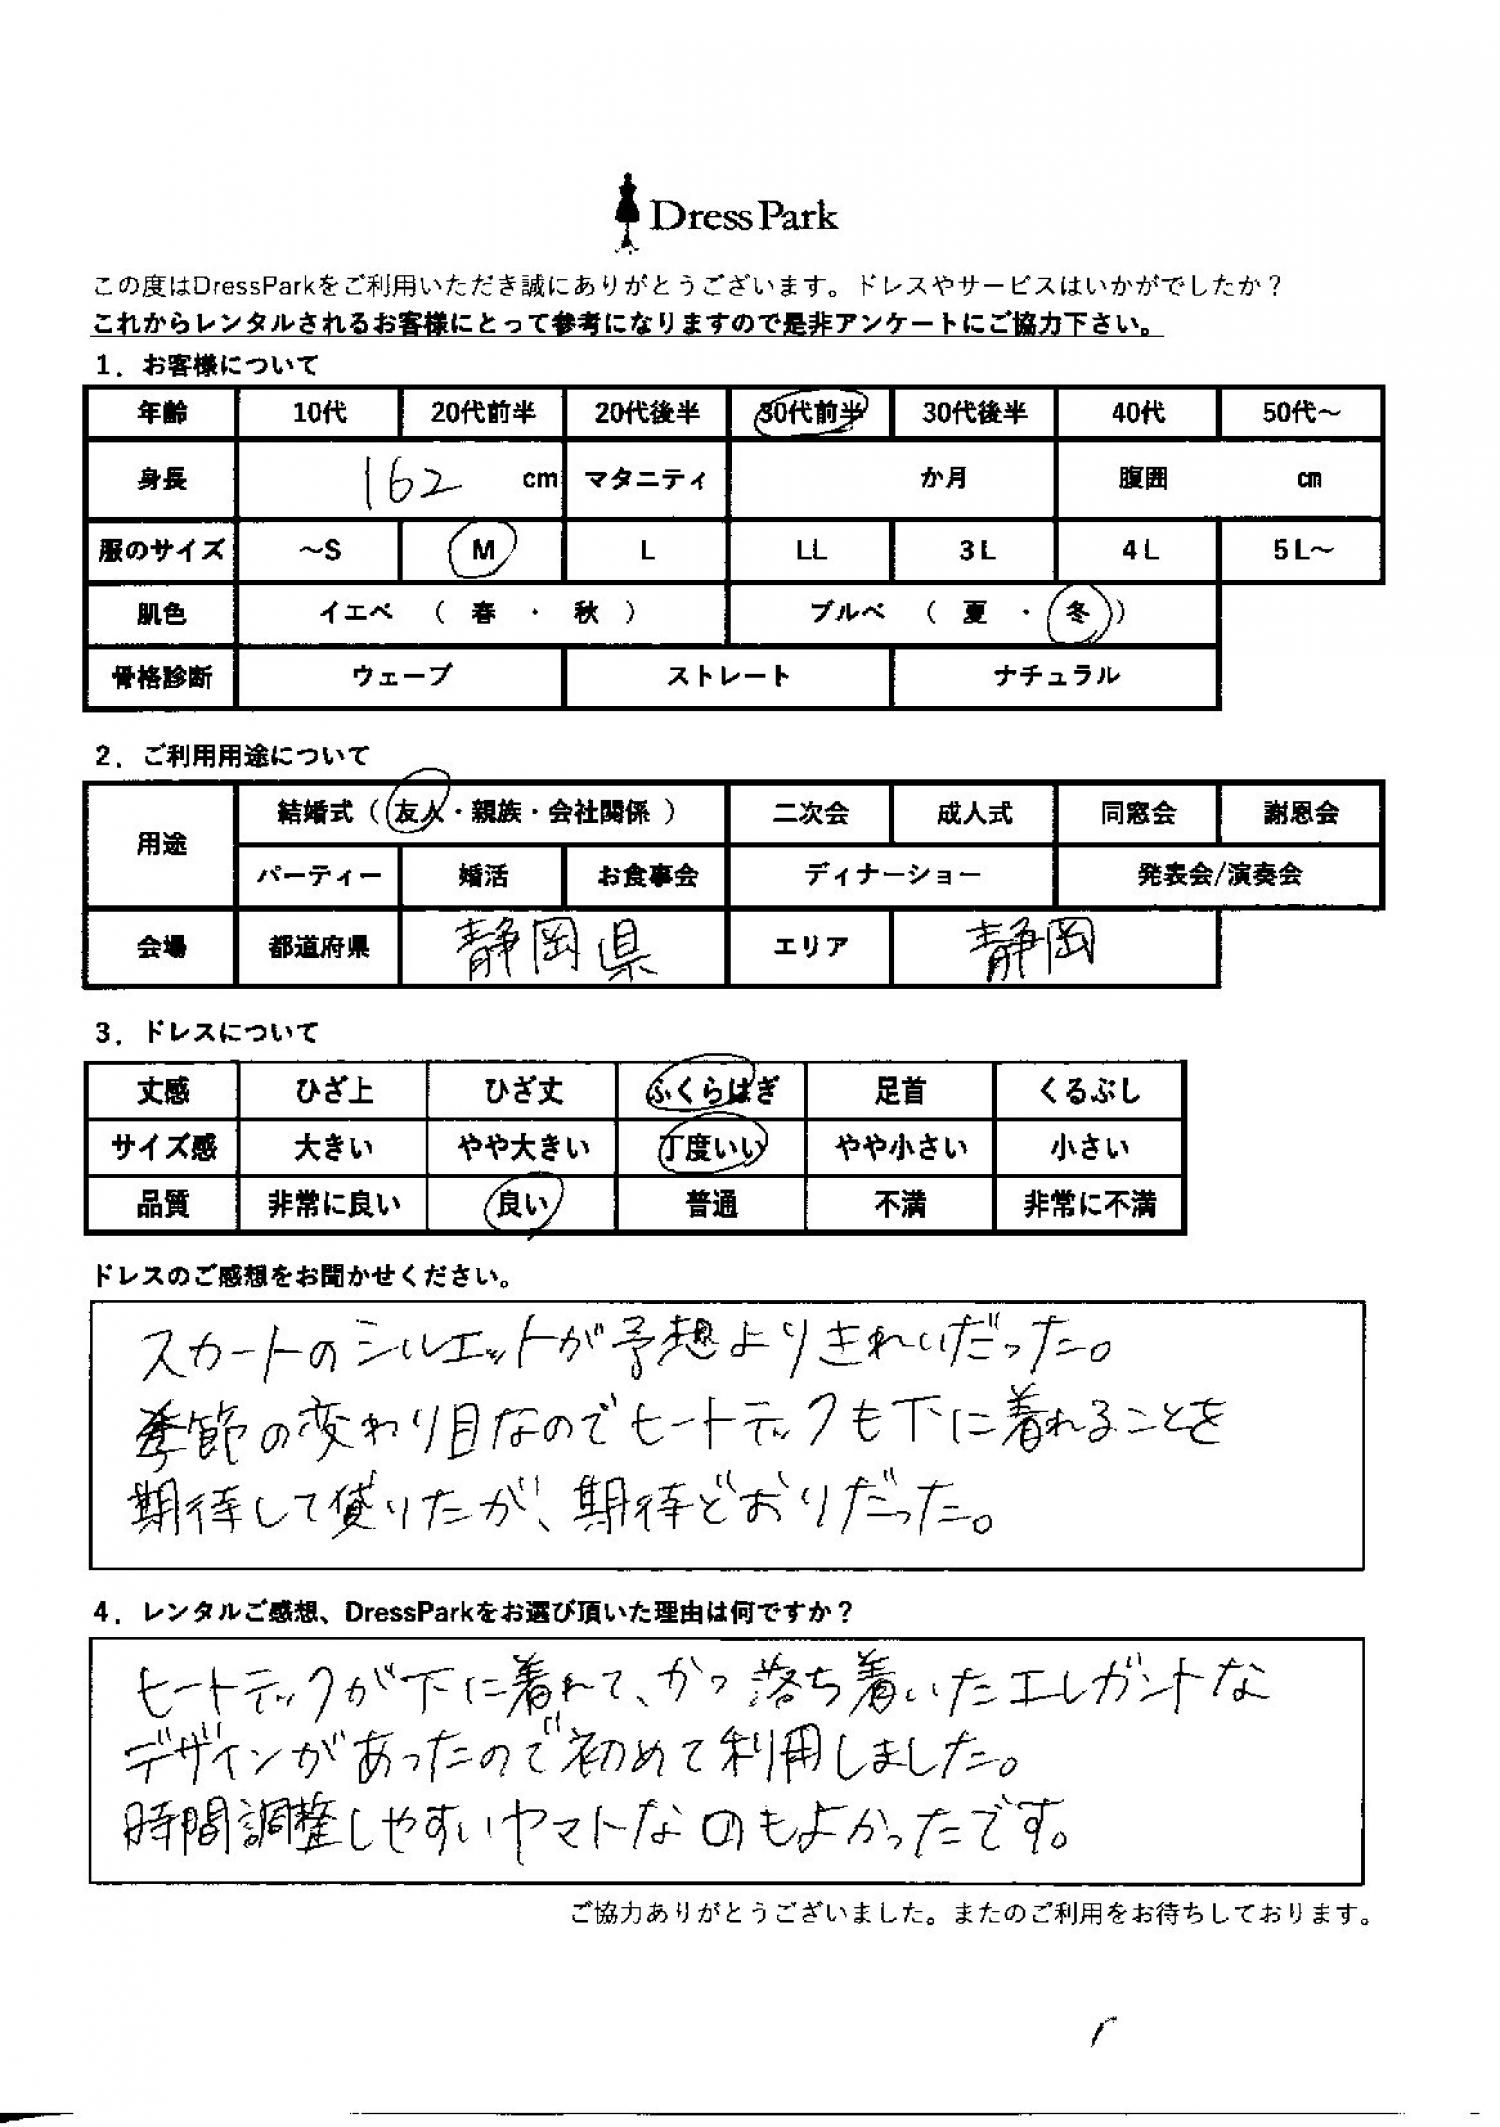 Dress Park
この度はDressParkをご利用いただき誠にありがとうございます。ドレスやサービスはいかがでしたか？
これからレンタルされるお客様にとって参考になりますので是非アンケートにご協力下さい。
1．お客様について
年齢 10代 20代前半 20代後半 30代前半 30代後半 40代 50代～
身長 162 cm マタニティ か月 腹囲 ㎝
服のサイズ ～S M L LL 3L 4L 5L～
肌色 イエベ （ 春 ・ 秋 ） ブルベ （ 夏 ・ 冬 ）
骨格診断 ウェーブ ストレート ナチュラル
2．ご利用用途について
用途 結婚式（ 友人・親族・会社関係 ） 二次会 成人式 同窓会 謝恩会
パーティー 婚活 お食事会 ディナーショー 発表会/演奏会
会場 都道府県 静岡県 エリア 静岡
3．ドレスについて
丈感 ひざ上 ひざ丈 ふくらはぎ 足首 くるぶし
サイズ感 大きい やや大きい 丁度いい やや小さい 小さい
品質 非常に良い 良い 普通 不満 非常に不満
ドレスのご感想をお聞かせください。
スカートのシルエットが予想よりきれいだった。
季節の変わり目なのでヒートテックも下に着れることを
期待して借りたが、期待どおりだった。
4．レンタルご感想、DressParkをお選び頂いた理由は何ですか？
ヒートテックが下に着れて、かつ落ち着いたエレガントな
デザインがあったので初めて利用しました。
時間調整しやすいヤマトなのもよかったです。
ご協力ありがとうございました。またのご利用をお待ちしております。